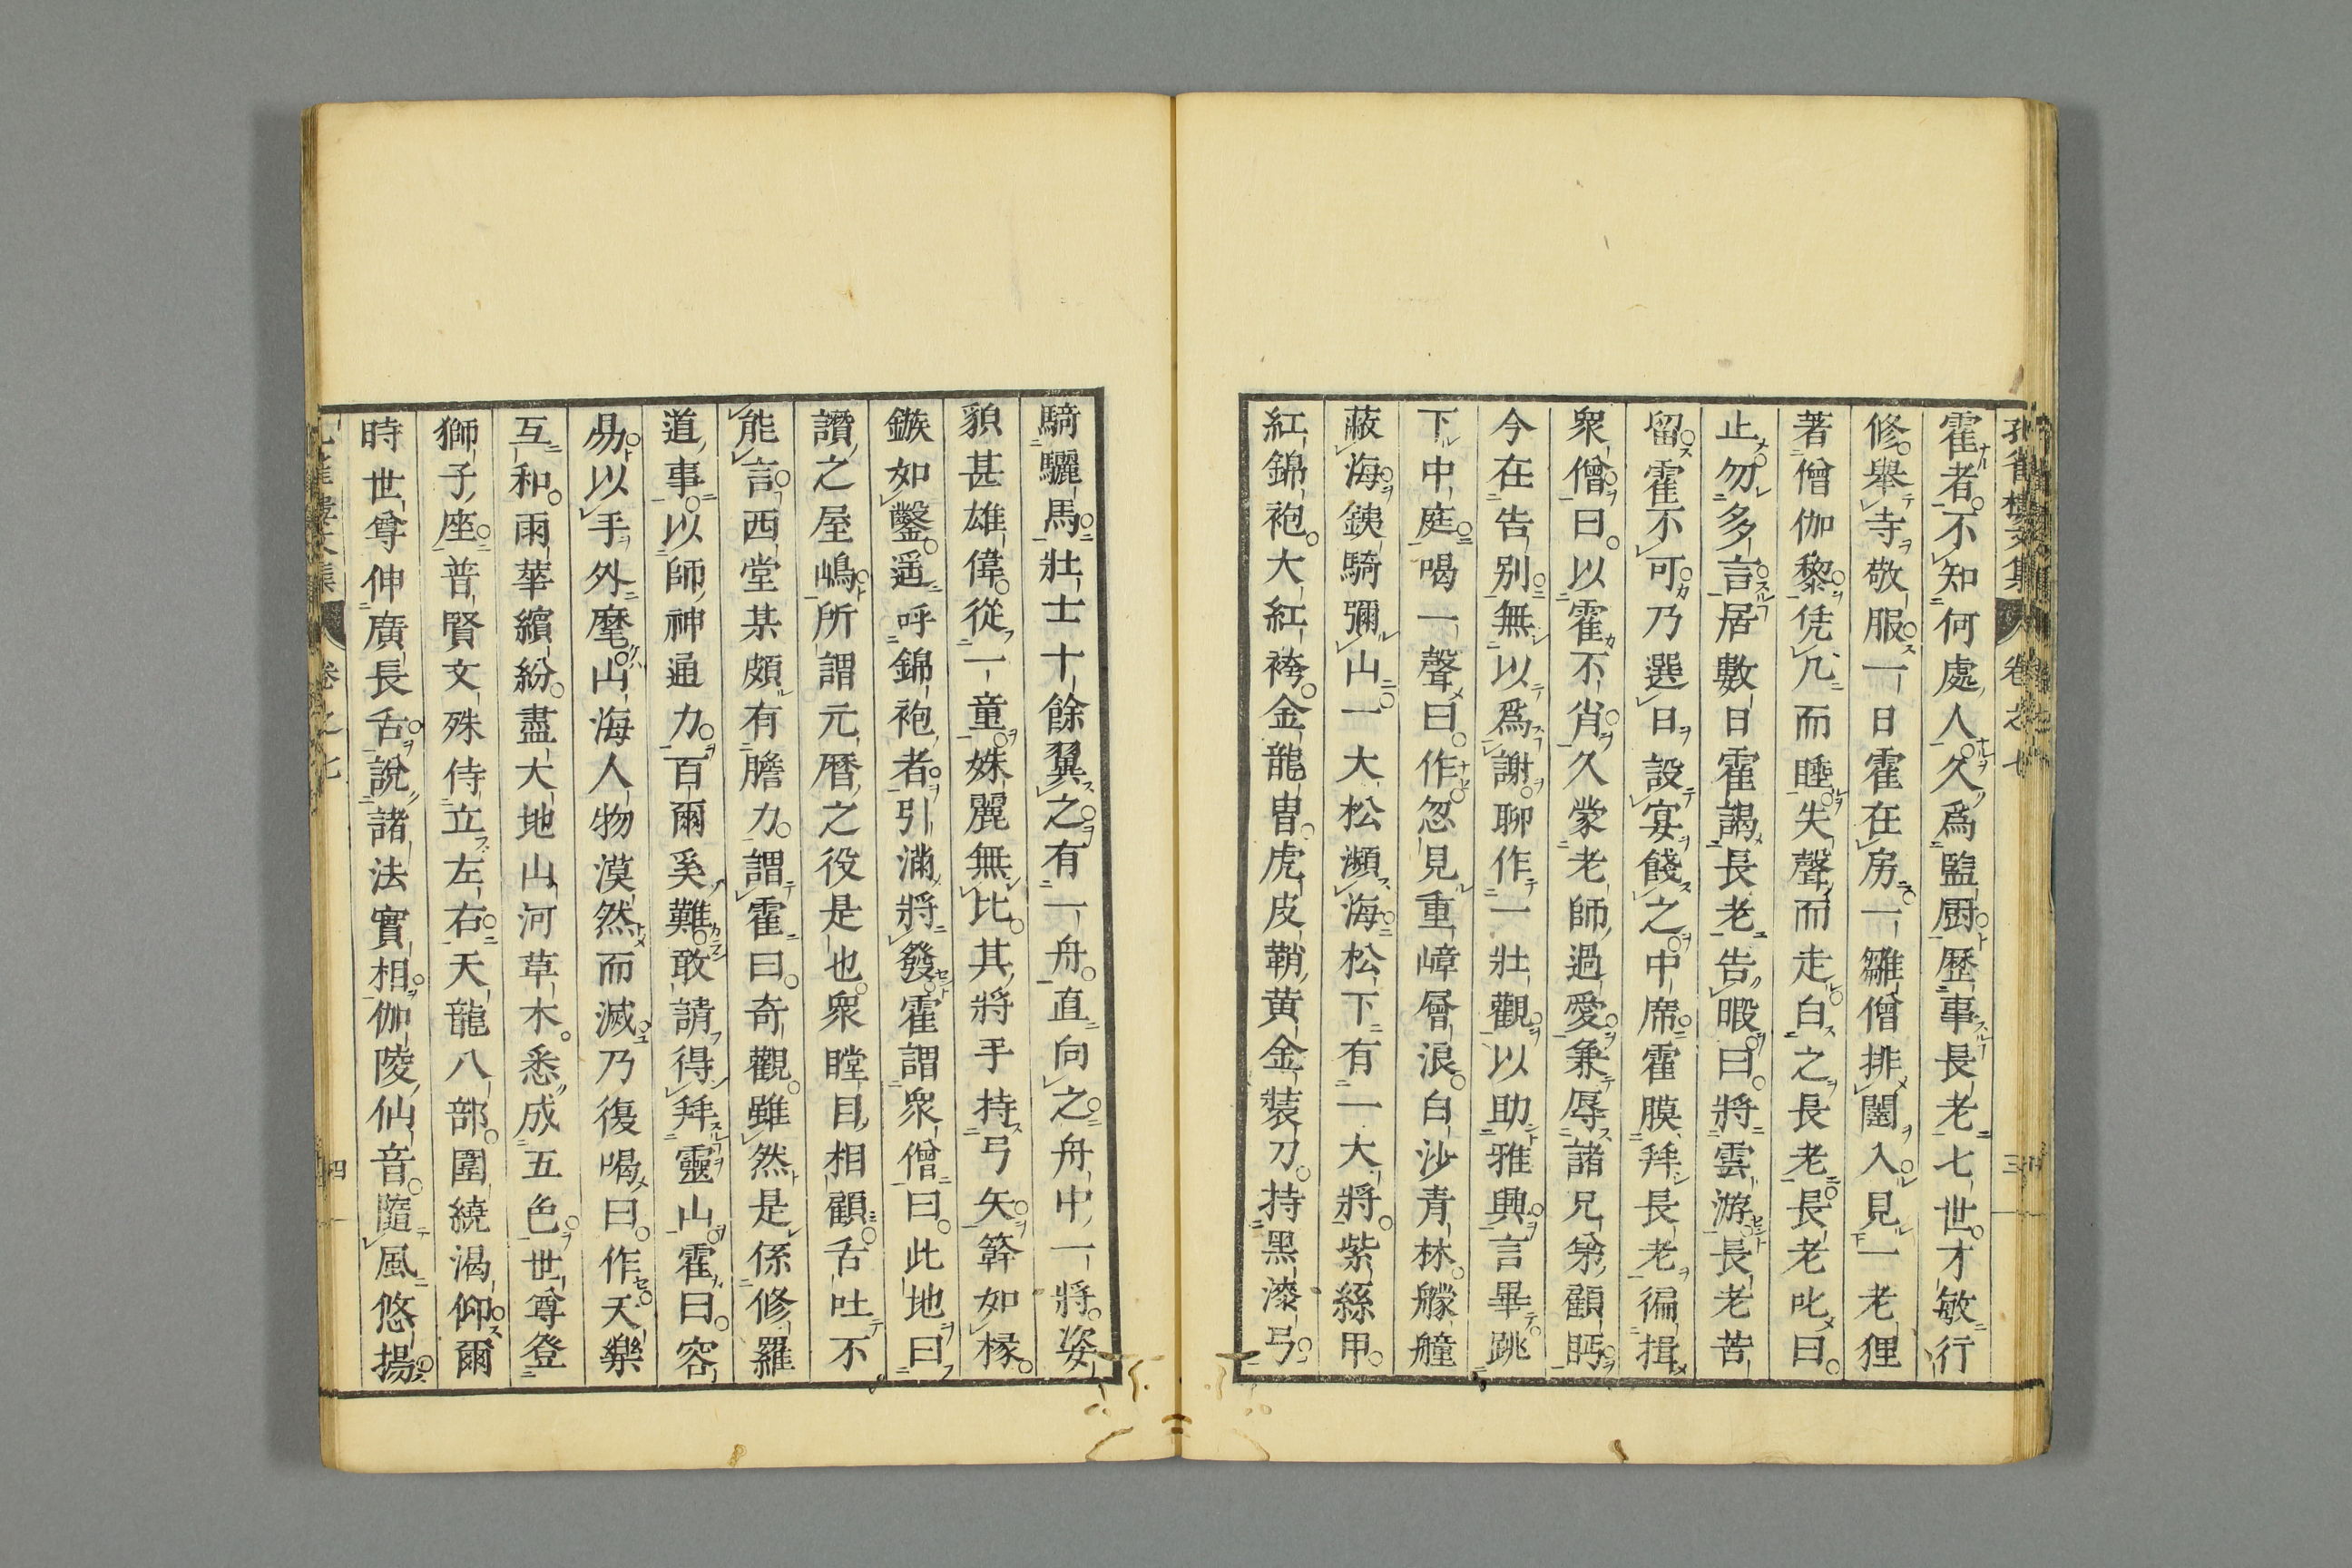 孔雀樓文集 卷之七 三
霍者。不知何處人。久爲監厨。歷事長老七世。才敏行
修。擧寺敬服。一日霍在房。一雛僧排闥入。見一老狸
著僧伽黎。凭几而睡。失聲而走。白之長老。長老叱曰。
止。勿多言。居數日霍謁長老告暇。曰。將雲游。長老苦
留。霍不可。乃選日設宴餞之。中席霍膜拜長老。徧揖
衆僧曰。以霍不肖。久蒙老師過愛。兼辱諸兄弟顧眄。
今在告別。無以爲謝。聊作一壯觀。以助雅興。言畢跳
下中庭。喝一聲曰。作。忽見重嶂層浪。白沙青林。艨艟
蔽海。鐵騎彌山。一大松瀕海。松下有一大將。紫絲甲。
紅錦袍。大紅袴。金龍冑。虎皮鞘。黄金裝刀。持黑漆弓。
騎驪馬。壯士十餘翼之。有一舟。直向之。舟中一將。姿
貌甚雄偉。從一童。姝麗無比。其將手持弓矢。簳如椽。
鏃如鑿。遥呼錦袍者。引滿將發。霍謂衆僧曰。此地曰
讚之屋嶋。所謂元曆之役是也。衆瞠目相顧。舌吐不
能言。西堂某頗有膽力。謂霍曰。奇觀。雖然是係修羅
道事。以師神通力。百爾奚難。敢請得拜靈山。霍曰。容
易。以手外麾。山海人物漠然而滅。乃復喝曰。作。天樂
互和。雨華繽紛。盡大地山河草木。悉成五色。世尊登
獅子座。普賢文殊侍立左右。天龍八部。圍繞渴仰。爾
時世尊伸廣長舌。說諸法實相。伽陵仙音。隨風悠揚
卷之七 四